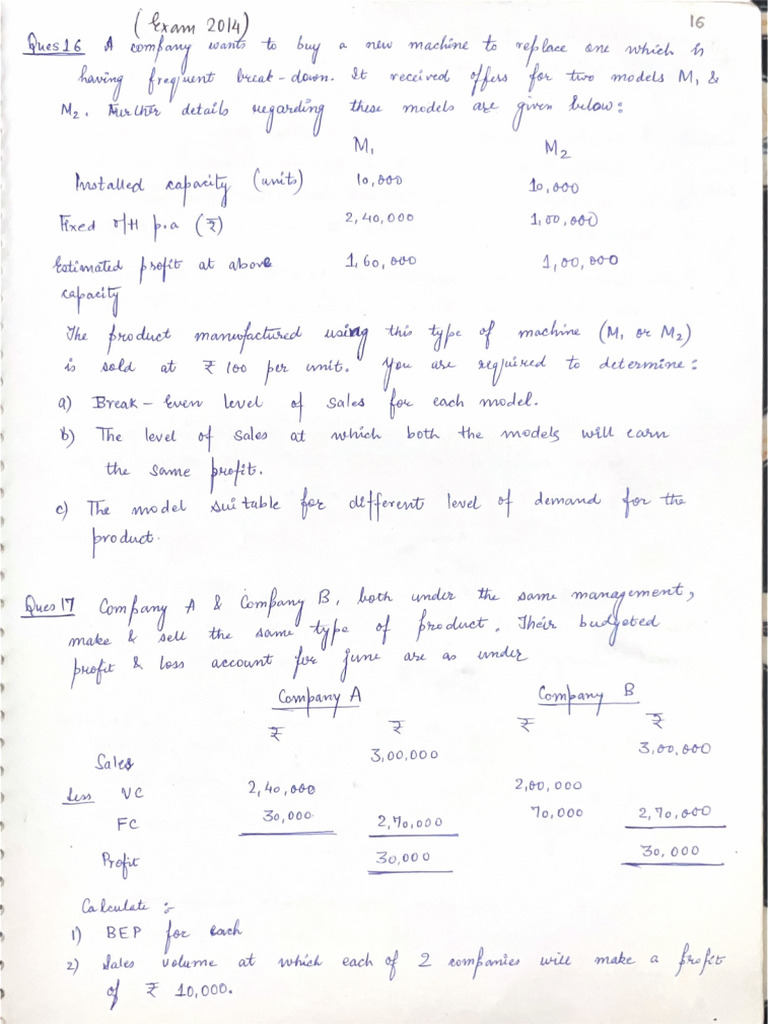 (Exam 2014)
16
Ques 16 A company wants to buy a new machine to replace one which is
having frequent break-down. It received offers for two models M1 &
M2. Further details regarding these models are given below:
M1 M2
Installed capacity (units) 10,000 10,000
Fixed O/H p.a (₹) 2,40,000 1,00,000
Estimated profit at above 1,60,000 1,00,000
capacity
The product manufactured using this type of machine (M1 or M2)
is sold at ₹ 100 per unit. You are required to determine:
a) Break-Even level of sales for each model.
b) The level of sales at which both the models will earn
the same profit.
c) The model suitable for different level of demand for the
product.
Ques 17 Company A & Company B, both under the same management,
make & sell the same type of product. Their budgeted
profit & loss account for June are as under
Company A Company B
₹ ₹ ₹ ₹
Sales 3,00,000 3,00,000
Less VC 2,40,000 2,00,000
FC 30,000 2,70,000 70,000 2,70,000
Profit 30,000 30,000
Calculate :-
1) BEP for each
2) Sales volume at which each of 2 companies will make a profit
of ₹ 10,000.